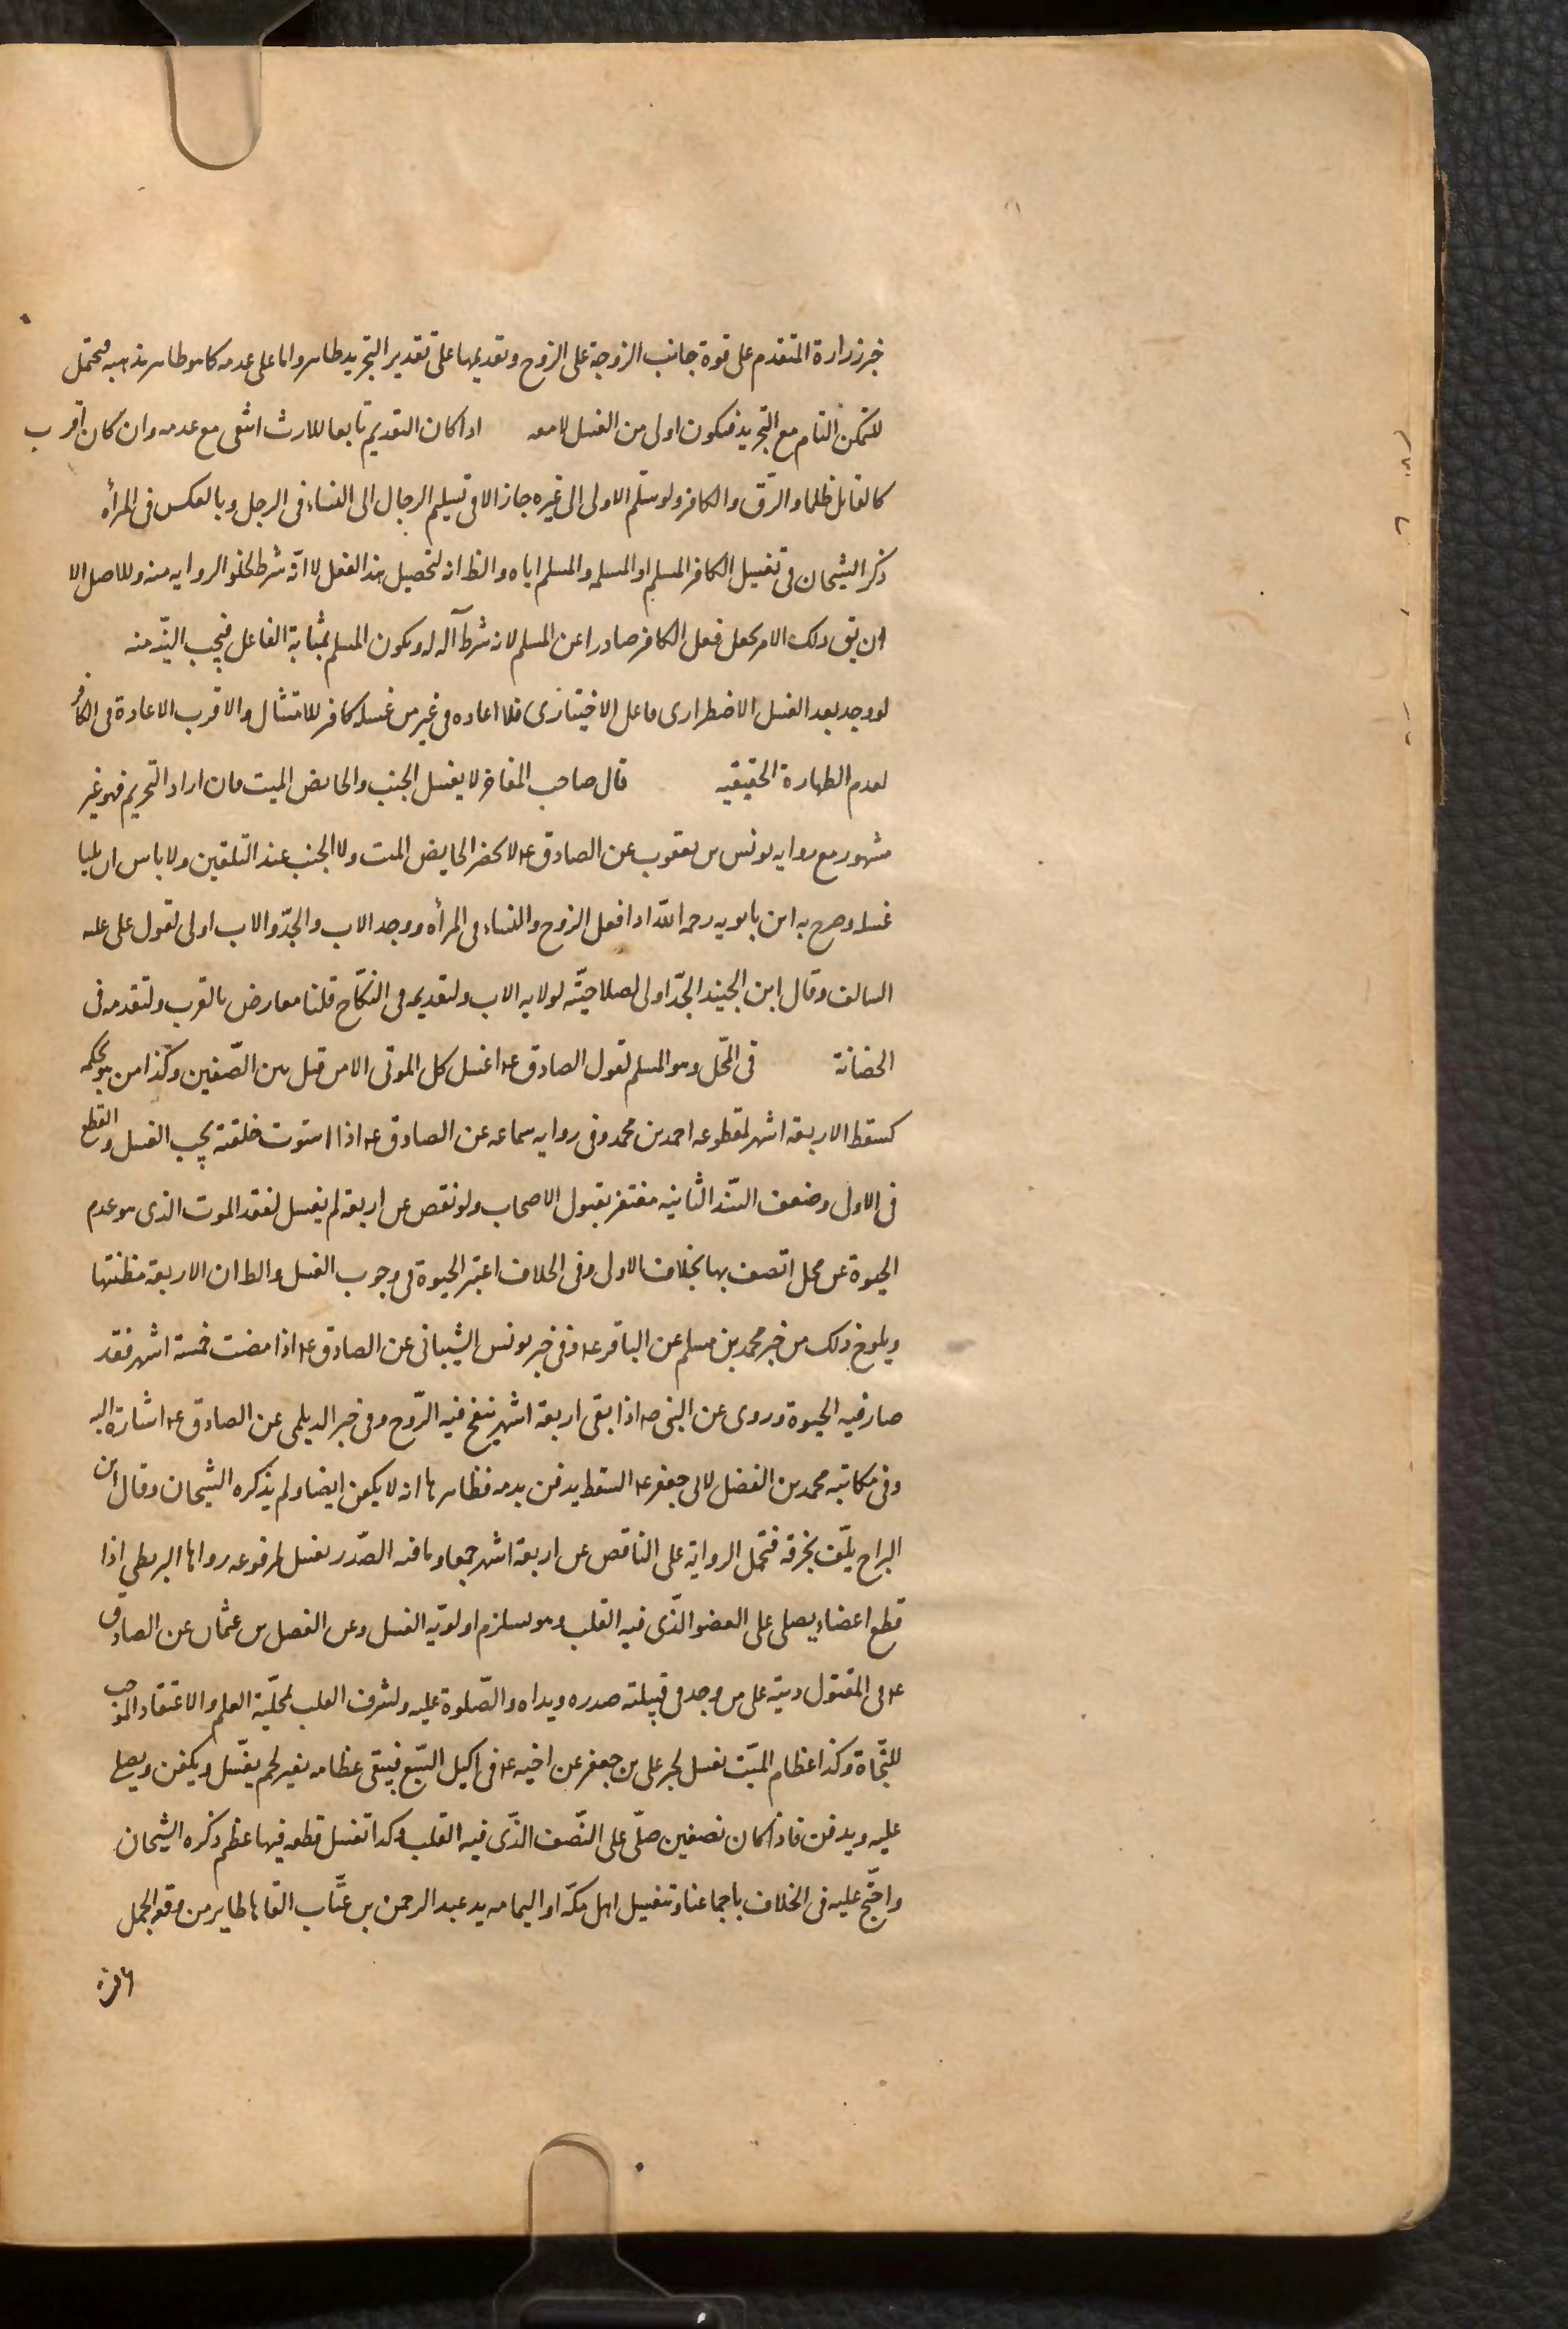 خبر زرارة المتقدم على قوة جانب الزوجة على الزوج وتقديمها على تقدير التجريد ظاهر واما على عدمه كما هو ظاهر مذهبه فيحتمل
للتمكن التام مع التجريد فيكون اولى من الغسل لا معه اذا كان التقديم تابعا للارث انتفى مع عدمه وان كان اقرب
كالقاتل ظلما والرق والكافر ولو سلم الاولى الى غيره جاز الا فى تسليم الرجال الى النساء فى الرجل وبالعكس فى المرأه
ذكر الشيخان فى تغسيل الكافر المسلم او المسلمه والمسلم اياه والظ انه لتحصيل هذا الفعل لا انه شرط لخلو الروايه منه وللاصل الا
ان يق ذلك الامر يجعل فعل الكافر صادرا عن المسلم لانه شرط آله له ويكون المسلم بمثابة الفاعل فيجب النية منه
لو وجد بعد الغسل الاضطرارى فاعل الاختيارى فلا اعاده فى غير من غسله كافر للامتثال والاقرب الاعادة فى الكافر
لعدم الطهارة الحقيقيه قال صاحب الفاخر لا يغسل الجنب والحايض الميت فان اراد التحريم فهو غير
مشهور مع روايه يونس بن يعقوب عن الصادق ع لا تحضر الحايض الميت ولا الجنب عند التلقين ولا باس ان يليا
غسله وصرح به ابن بابويه رحمه الله اذا فعل الزوج والنساء فى المرأه ووجد الاب والجد والاب اولى لقول على عليه
السالف وقال ابن الجنيد الجد اولى لصلاحيته لولايه الاب ولتقديمه فى النكاح قلنا معارض بالقرب ولتقدمه فى
الحضانة فى المحل وهو المسلم لقول الصادق ع اغسل كل الموتى الا من قتل بين الصفين وكذا من بحكمه
كسقط الاربعة اشهر لمقطوعه احمد بن محمد وفى روايه سماعه عن الصادق ع اذا استوت خلقته يجب الغسل والقطع
فى الاول وضعف السند الثانيه مغتفر بقبول الاصحاب ولو نقص عن اربعة لم يغسل لفقد الموت الذى هو عدم
الحيوة عن محل اتصف بها بخلاف الاول وفى الخلاف اعتبر الحيوة فى وجوب الغسل والظ ان الاربعة مظنتها
ويلوح ذلك من خبر محمد بن مسلم عن الباقر ع وفى خبر يونس الشيبانى عن الصادق ع اذا مضت خمسة اشهر فقد
صار فيه الحيوة وروى عن النبى ص اذا بقى اربعة اشهر ينفخ فيه الروح وفى خبر الديلمى عن الصادق ع اشارة اليه
وفى مكاتبه محمد بن الفضل لابى جعفر ع السقط يدفن بدمه فظاهرها انه لا يكفن ايضا ولم يذكره الشيخان وقال ابن
البراج يلف بخرقه فتحمل الرواية على الناقص عن اربعة اشهر جمعا وما فيه الصدر يغسل لمرفوعه رواها البزنطى اذا
قطع اعضاء يصلى على العضو الذى فيه القلب وهو يستلزم اولويه الغسل وعن الفضل بن عثمان عن الصادق
ع فى المقتول ديته على من وجد فى قبيلته صدره ويداه والصلوة عليه ولشرف القلب لمحلية العلم والاعتقاد الموجب
للنجاة وكذا عظام الميت تغسل لخبر على بن جعفر عن اخيه ع فى اكيل السبع فيبقى عظامه بغير لحم يغسل ويكفن ويصلى
عليه ويدفن فاذا كان نصفين صلى على النصف الذى فيه القلب وكذا تغسل قطعه فيها عظم ذكره الشيخان
واحتج عليه فى الخلاف باجماعنا وتغسيل اهل مكة او اليمامه يد عبد الرحمن بن عتاب القاها طاير من وقعه الجمل